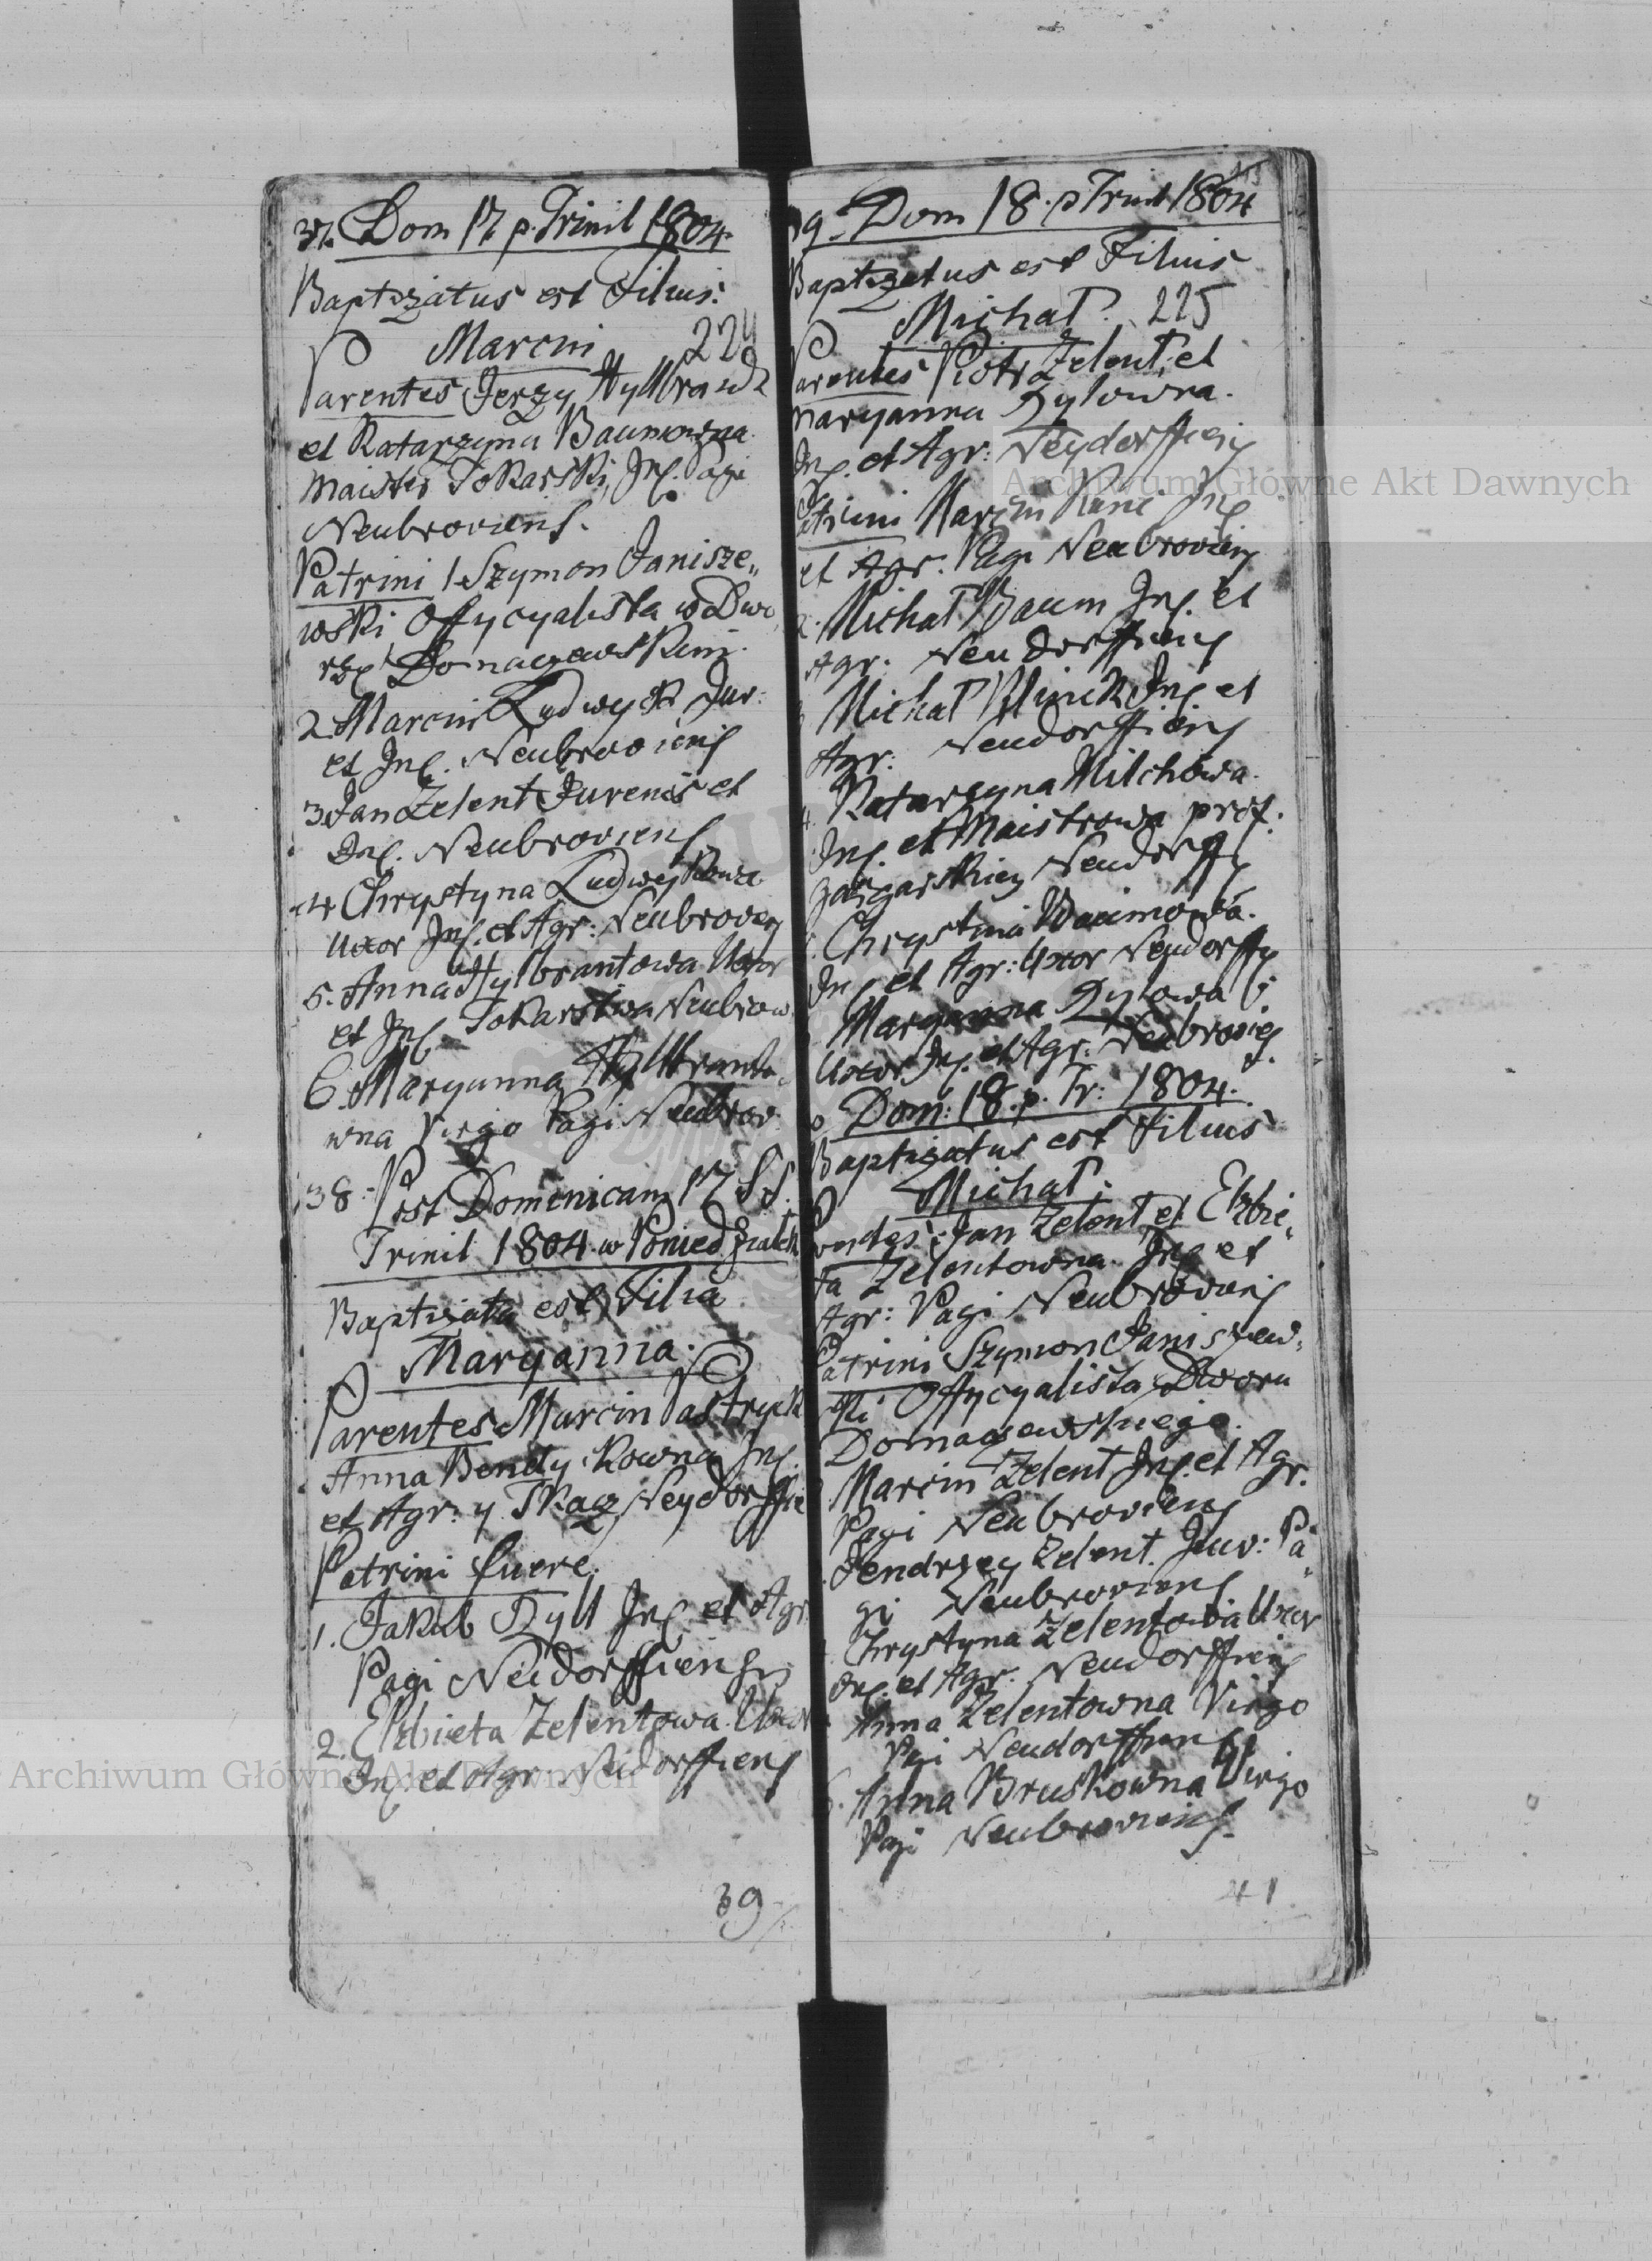 37. Dom 17 p. Trinit 1804.
Baptizatus est Filius.
Marcin 224
Parentes Jerzy Hyllbrandt
et Katarzyna Baumowna
Maister Tokarski, Inq. Pagi
Neubroviens.
Patrini 1. Szymon Janisze„
wski Offycyalista w Dwo
rze Domaczewskim.
2. Marcin Ludwyk Juv:
et Inq. Neubroviens
3. Jan Zelent Juvenis et
Inq. Neubroviens
4. Chrystyna Ludwykowa
Uxor Inq. et Agr: Neubrov
5. Anna Hylbrantowa Uxor
et Inq. Tokarska Neubrow
6. Maryanna Hyllbranto„
wna Virgo Pagi Neubrov.
38. Post Domenicam 17 SS.
Trinit 1804. w Poniedzialek
Baptizata est Filia
Maryanna.
Parentes Marcin Pastryk
Anna Bendykowna Inq.
et Agr: y Tkacz Neydorffie
Patrini fuere.
1. Jakub Ryll Inq. et Agr
Pagi Neidorffiensis
2. Elzbieta Zelentowa Uxor
Inq. et Agr Neidorffiens
39
39. Dom 18. p Trinit 1804
Baptizatus est Filius
Michał. 225
Parentes Piotr Zelent, et
Maryanna Rylowna.
Inq. et Agr: Neydorffiens
Patrini Marcin Kunc Inq
et Agr. Pagi Neubroviens
2. Michał Baum Inq. et
Agr. Neudorffiens
Michał Klinck Inq et
Agr: Neudorffiens
4. Katarzyna Milchowa.
Inq. et Maistrowa prof.
Neudorff
Chrystina Baumowa.
Inq et Agr: Uxor Neydorff
Maryanna Rylowa
Uxor Inq. et Agr: Neubrovie
Dom: 18. p. Tr: 1804.
Baptizatus est Filius
Michał.
Jan Zelent et Elzbie„
ta Zelentowna Inq et
Agr: Pagi Neubroviens
Patrini Szymon Janiszew„
ski Offycyalista Dworu
Domaczewskiego.
Marcin Zelent Inq. et Agr.
Pagi Neubroviens
Jendrzey Zelent. Juv: Pa„
gi Neubroviens
Chrystyna Zelentowa Uxor
Inq. et Agr. Neudorffiens
Anna Zelentowna Virgo
Pagi Neudorffiens
Anna Bruskowna Virgo
Pagi Neubroviens.
41
Archiwum Główne Akt Dawnych
Archiwum Główne Akt Dawnych